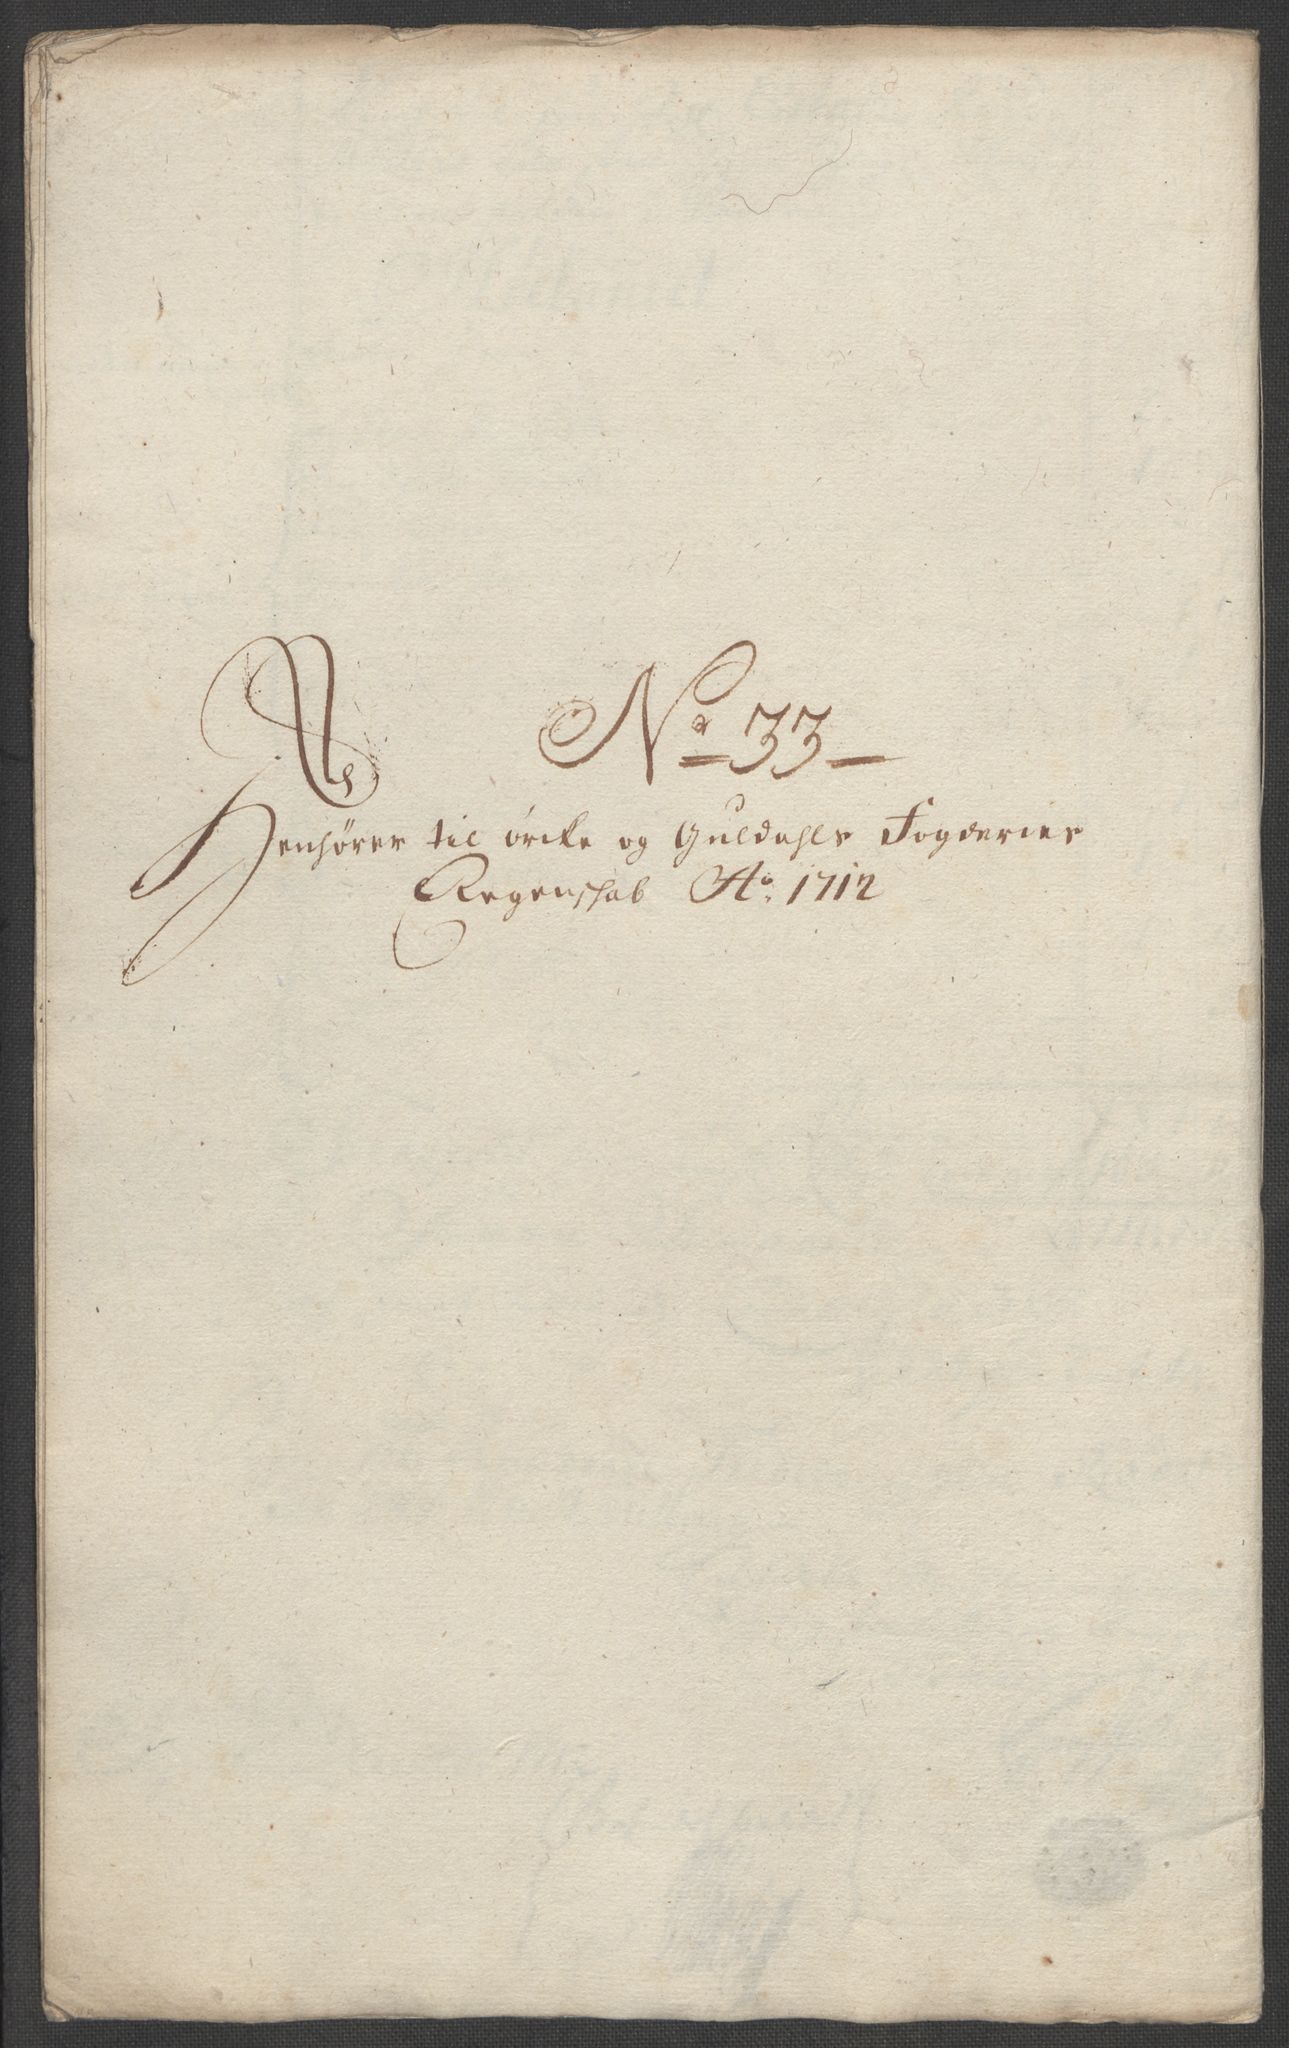 No 33
Henhører til Ørcke og Guldahls Fogderies
Regenschab Ao. 1712